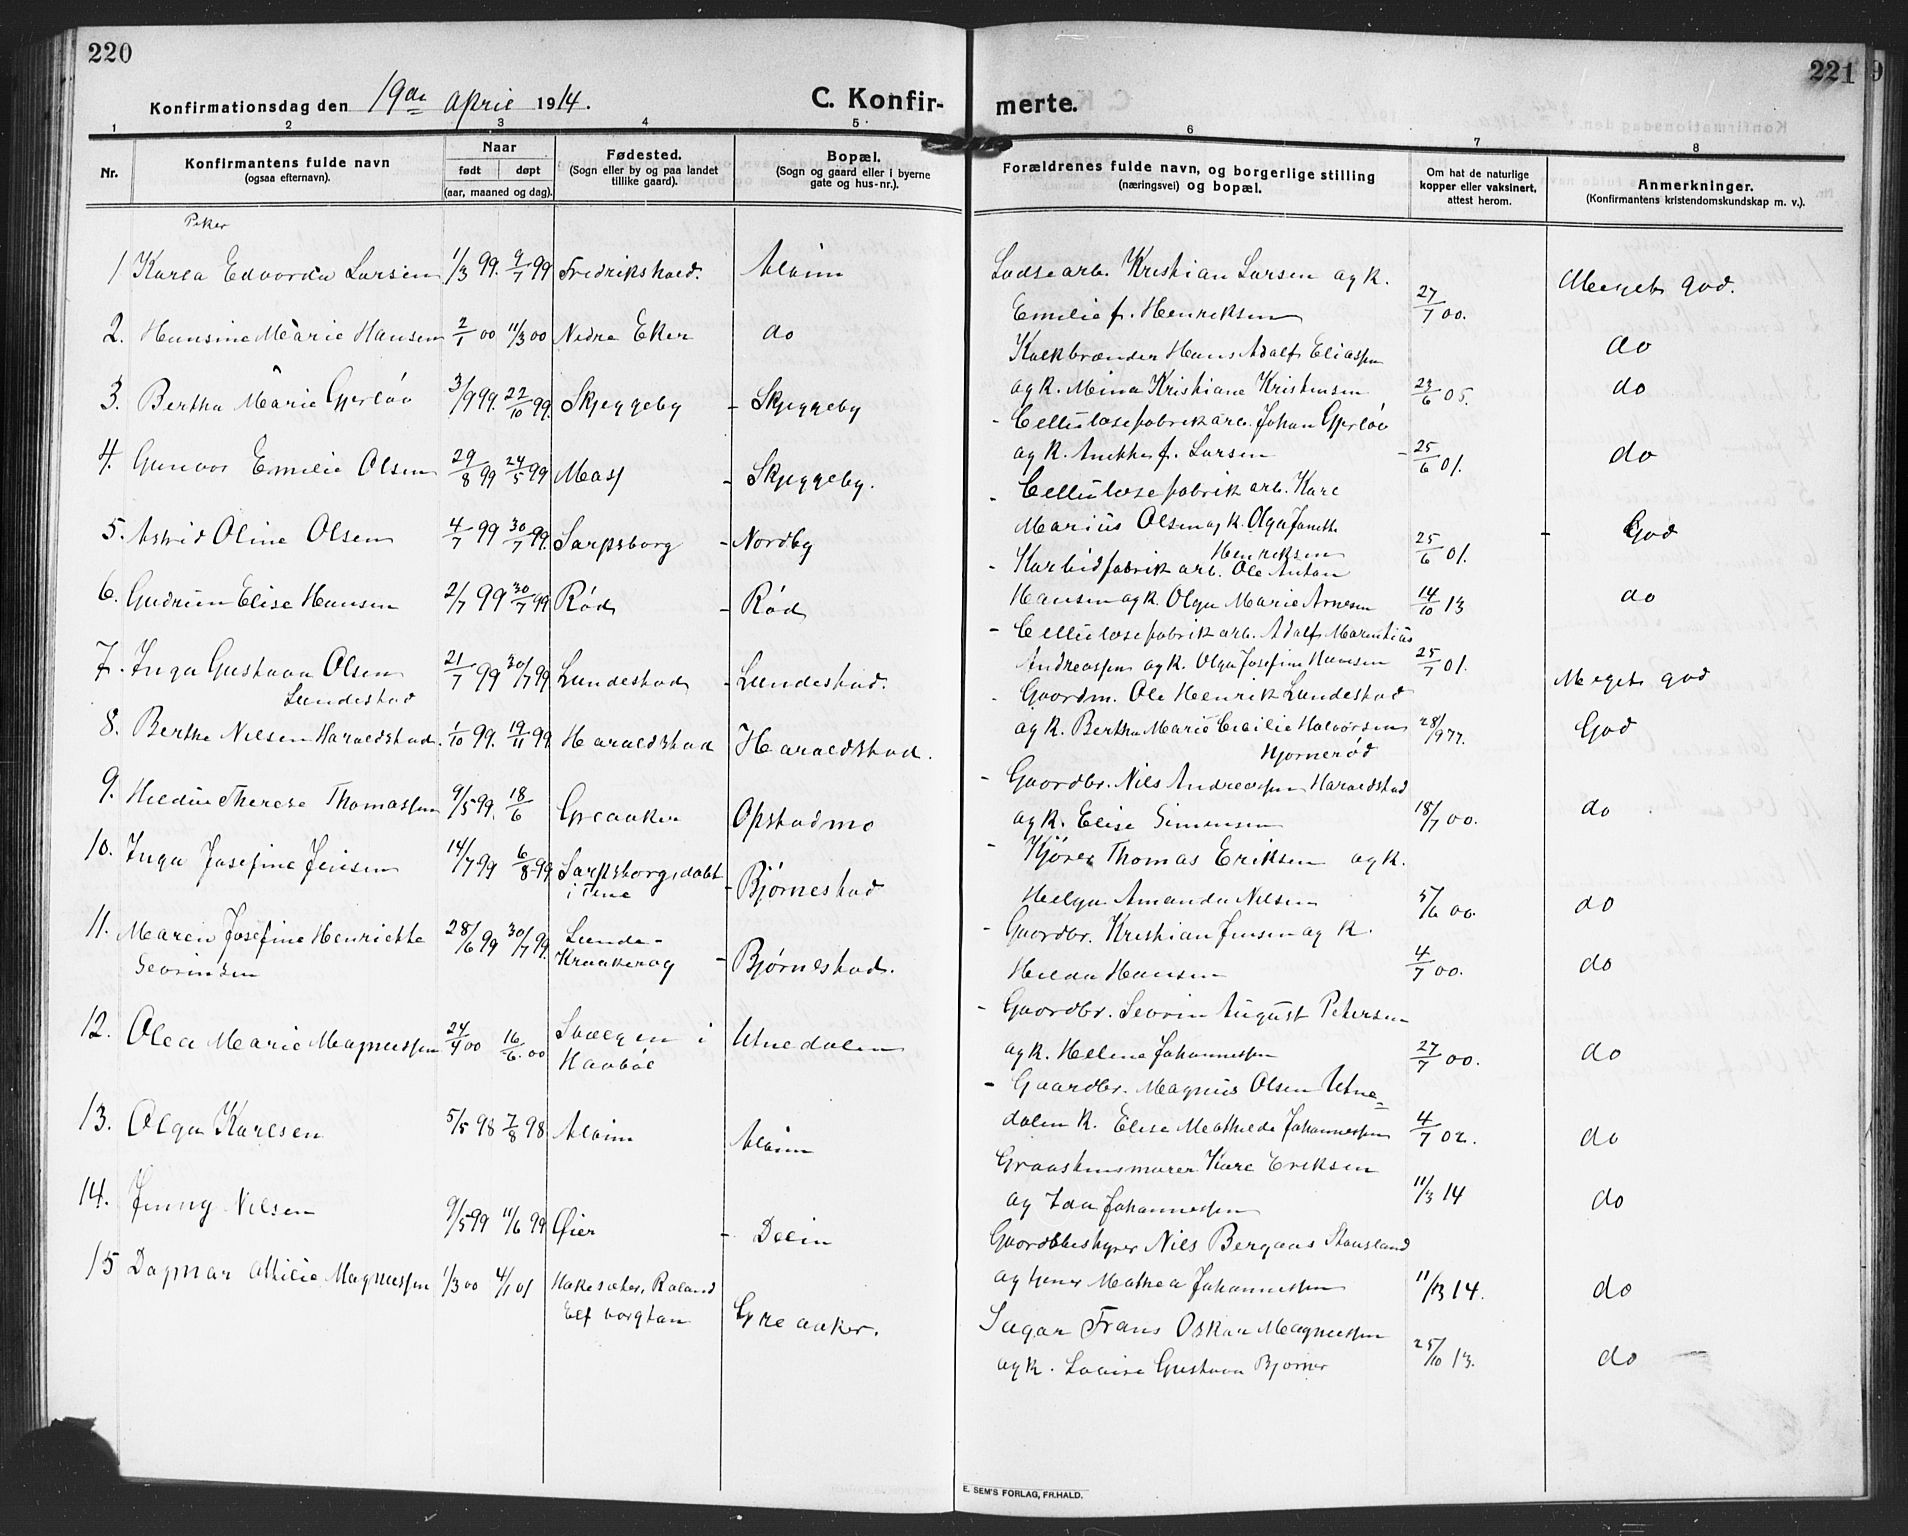 220
221
9
Konfirmationsdag den 19de April 1914.
C. Konfirmerte.
1 2 3 4 5 6 7 8
Nr.
Konfirmantens fulde navn
(ogsaa efternavn).
Naar
født døpt
(aar, maaned og dag).
Fødested.
(Sogn eller by og paa landet
tillike gaard).
Bopæl.
(Sogn og gaard eller i byerne
gate og hus-nr.).
Forældrenes fulde navn, og borgerlige stilling
(næringsvei) og bopæl.
Om hat de naturlige
kopper eller vaksinert,
attest herom.
Anmerkninger.
(Konfirmantens kristendomskundskap m. v.).
Piker
1 Karla Edvarda Larsen 1/3 99. 9/7 99 Fredrikshald. Alvim
Lodsearb. Kristian Larsen og k.
Emilie f. Henriksen 27/7 00. Meget god.
2. Hansine Marie Hansen 2/1 00 11/3 00 Nedre Eker do
Kalkbrænder Hans Adolf Eliassen
og k. Mina Kristiane Kristensen 23/6 05. do
3. Bertha Marie Gjerløv 3/9 99. 22/10 99. Skjeggeby - Skjeggeby do
- Cellulosefabrikarb. Johan Gjerløv
og k. Anethe f. Larsen - 25/6 01.
4. Gunvor Emilie Olsen 29/8 99 24/5 99 Moss - Skjeggeby. do
- Cellulosefabrik arb. Karl
Marius Olsen og k. Olga Janethe
Henriksen 25/6 01.
5. Astrid Oline Olsen 4/7 99 30/7 99. Sarpsborg - Nordby - God
- Karbidfabrik arb. Ole Anton
Hansen og k. Olga Marie Arnesen 14/10 13
6. Gudrun Elise Hansen 2/7 99 30/7 99 Rød - Rød do
- Cellulosefabrik arb. Adolf Marentius
Andreassen og k. Olga Josefine Hansen 25/7 01.
7. Inga Gustava Olsen
Lundestad 21/7 99 30/7 99 Lundestad - Lundestad. Meget god
- Gaardm. Ole Henrik Lundestad
og k. Bertha Marie Cecilie Halvorsen
Hjørnerød 28/9 77.
8. Berthe Nilsen Haraldstad. 1/10 99. 19/11 99 Haraldstad Haraldstad. God
- Gaardbr. Nils Andreassen Haraldstad
og k. Elise Simensen 18/7 00.
9. Hildur Therese Thomassen 9/5 99. 18/6 Greaaker Opstadmo do
- Kjører Thomas Eriksen og k.
Helga Amanda Nilsen 5/6 00.
10. Inga Josefine Jensen 14/7 99 6/8 99 Sarpsborg, døbt
i Tune - Bjørnestad do
- Gaardbr. Kristian Jensen og k.
Hilda Hansen 4/7 00.
11. Maren Josefine Henriette
Sevrinsen 28/6 99 30/7 99. Lunde-
Kraakerøy - Bjørnestad. do
- Gaardbr. Sevrin August Petersen
og k. Helene Johannessen 27/7 00.
12. Olea Marie Magnussen 24/4 00 16/6. 00 Svelgen i
Havbøl Utnedalen do
- Gaardbr. Magnus Olsen Utne=
dalen k. Elise Mathilde Johannessen 4/7 02.
13. Olga Karlsen 5/5 98 7/8 98 Alvim Alvim do
Graastensmurer Karl Eriksen
og Ida Johannessen 11/3 14
14. Jenny Nilsen 9/5 99 11/6 99 Øier - Dælin do
Gaardbestyrer Nils Bergans Stausland
og tjener Mathea Johannessen 11/3 14.
15 Dagmar Otilie Magnussen 1/3 00 4/1 01 Hakesæter, Roland
Elfvorgtan Greaaker. do
Sagar Frans Oskar Magnussen
og k. Lovise Gustava Bjørner 25/10 13. do
E. SEM'S FORLAG, FR.HALD.